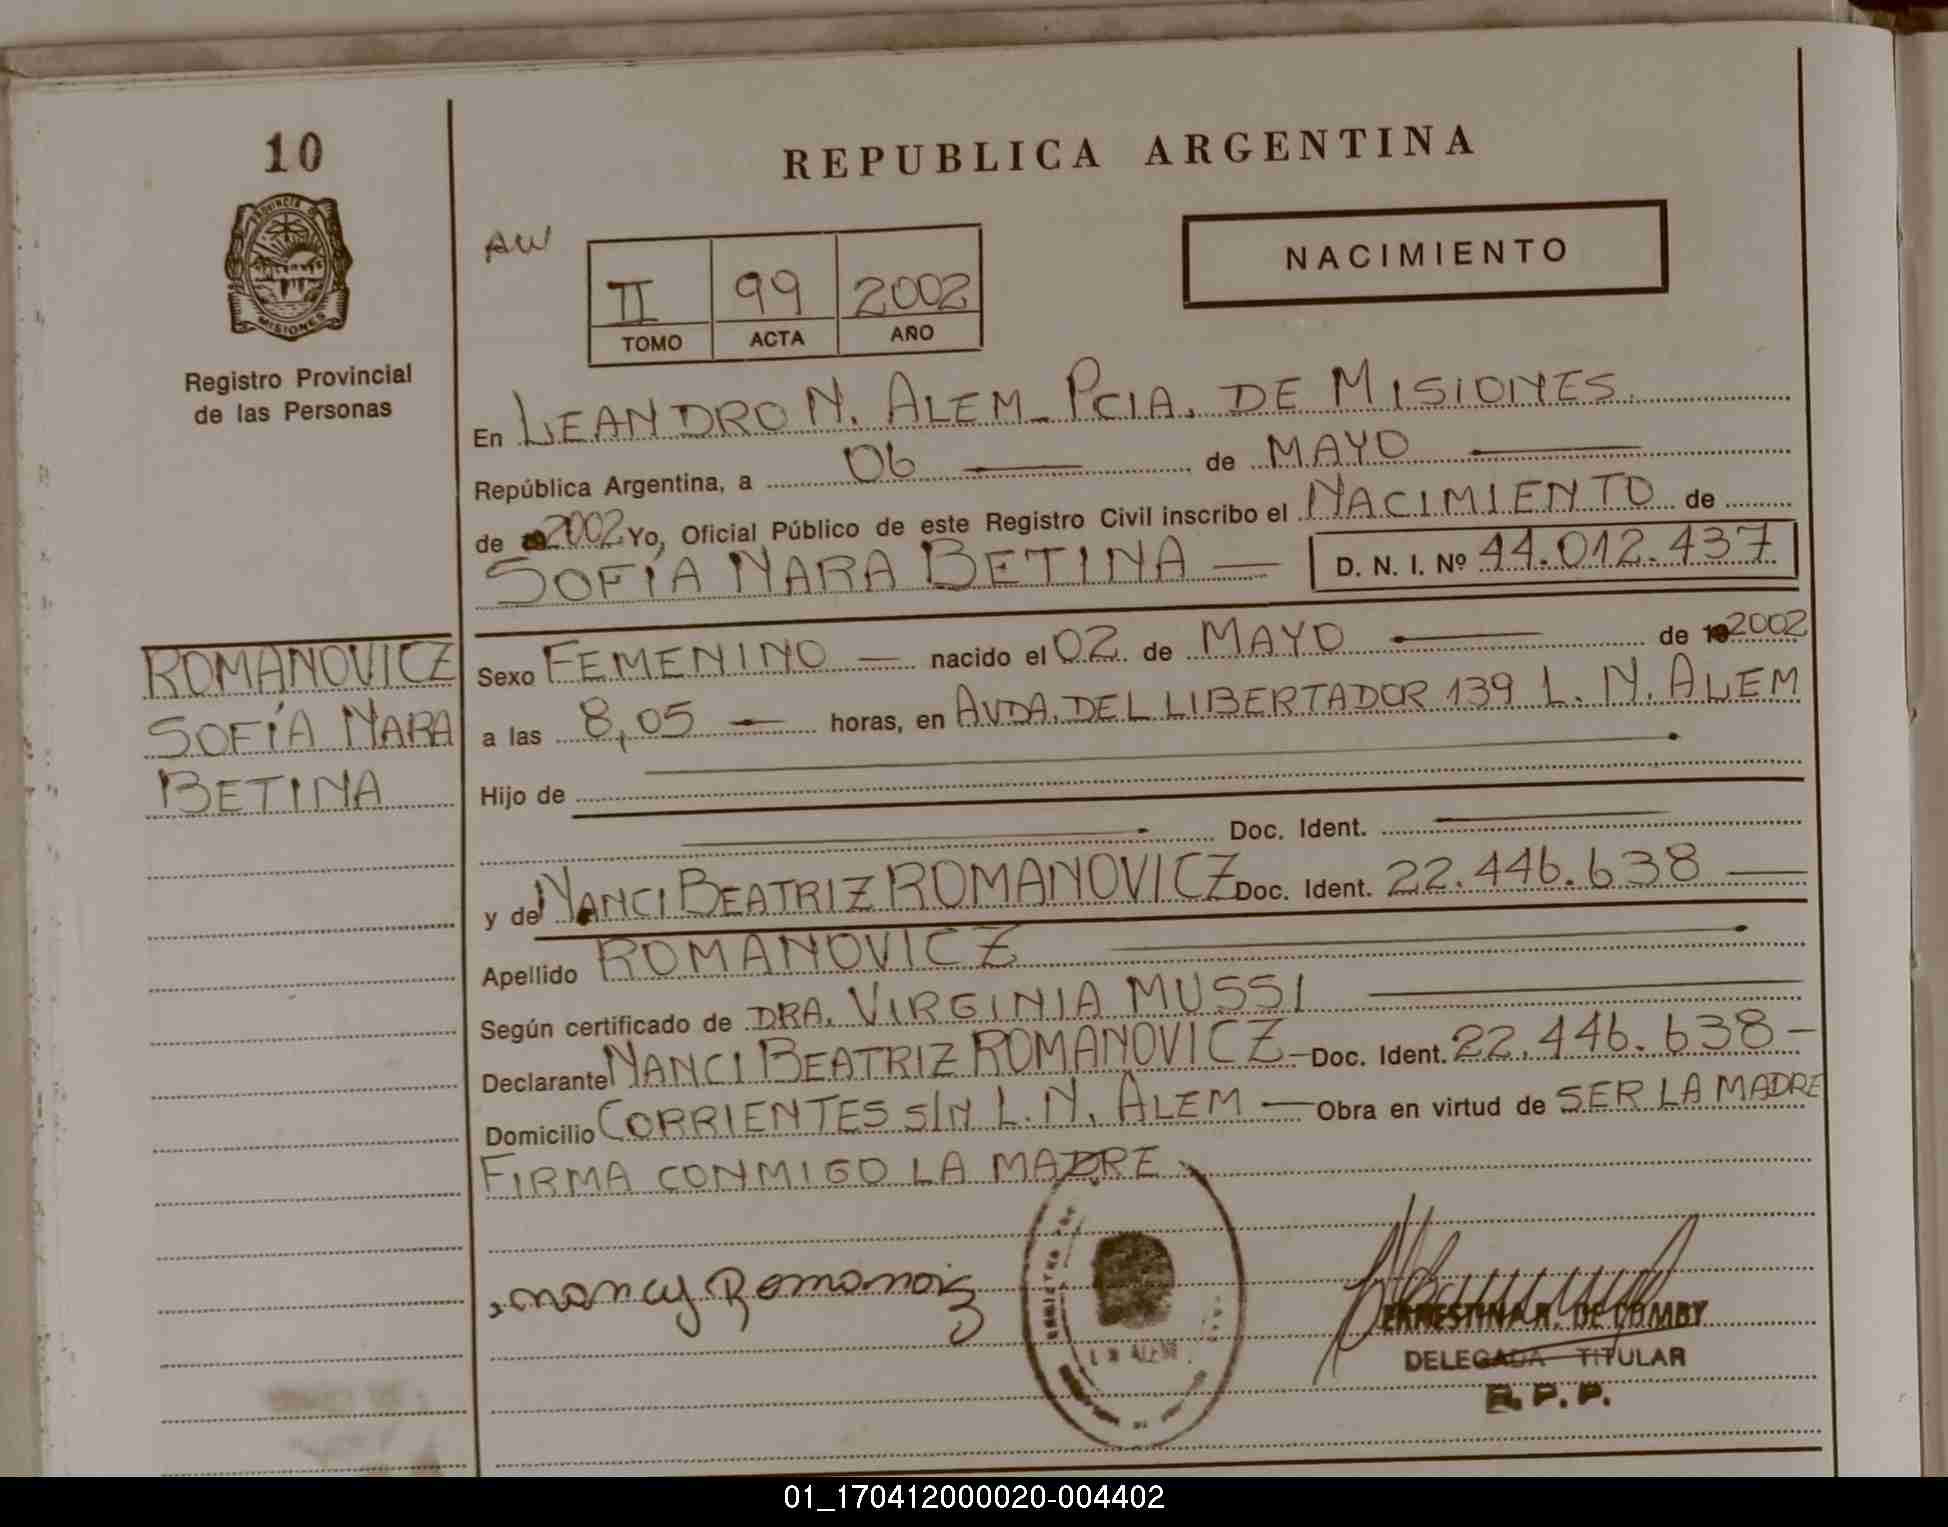 10
PROVINCIA DE
MISIONES
Registro Provincial
de las Personas
ROMANOVICZ
SOFÍA NARA
BETINA
REPUBLICA ARGENTINA
AW
II 99 2002
TOMO ACTA AÑO
NACIMIENTO
En LEANDRO N. ALEM_ PCIA. DE MISIONES.
República Argentina, a 06 — de MAYO —
de 2002 Yo, Oficial Público de este Registro Civil inscribo el NACIMIENTO de
SOFÍA NARA BETINA — D. N. I. Nº 44.012.437
Sexo FEMENINO — nacido el 02 de MAYO — de 2002
a las 8,05 — horas, en AVDA. DEL LIBERTADOR 139 L. N. ALEM
Hijo de —
— Doc. Ident. —
y de NANCI BEATRIZ ROMANOVICZ Doc. Ident. 22.446.638 —
Apellido ROMANOVICZ —
Según certificado de DRA. VIRGINIA MUSSI —
Declarante NANCI BEATRIZ ROMANOVICZ – Doc. Ident. 22.446.638 –
Domicilio CORRIENTES S/N L. N. ALEM — Obra en virtud de SER LA MADRE
FIRMA CONMIGO LA MADRE
nancy Romanoviz
L N ALEM
ERNESTINA R. DE COMBY
DELEGADA TITULAR
R. P. P.
01_170412000020-004402